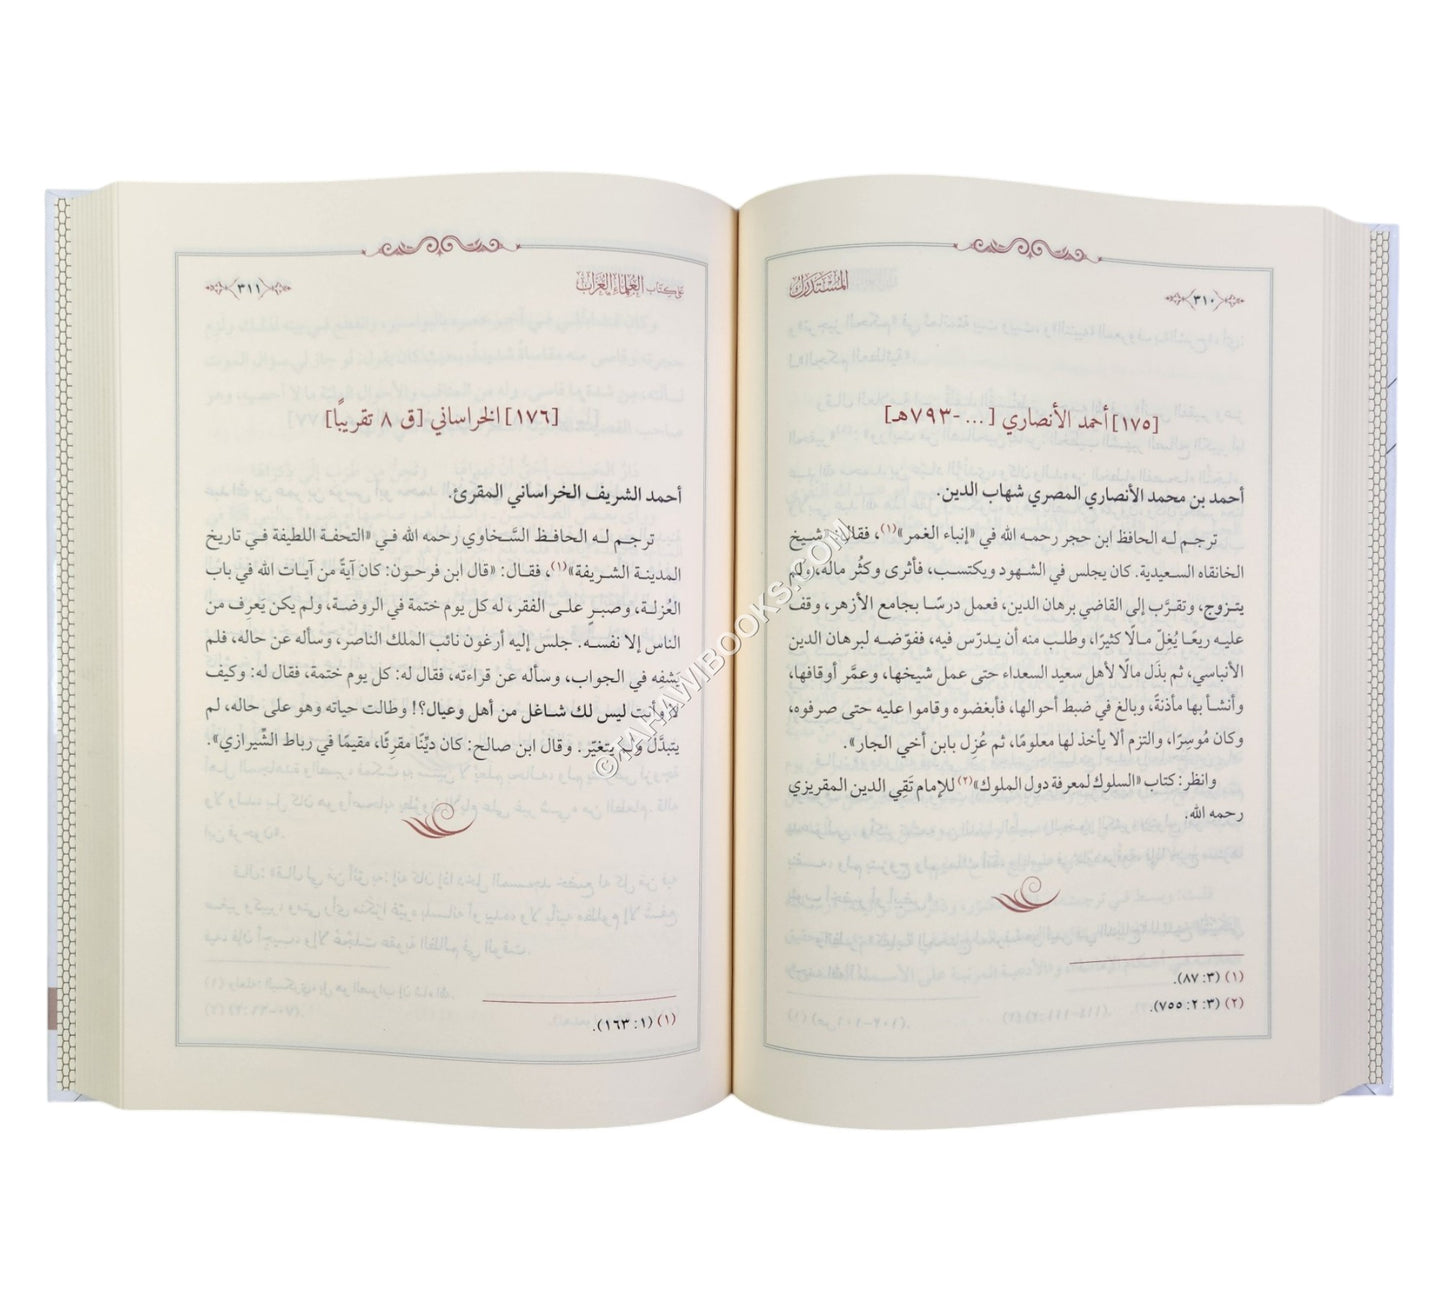 ٣١٠
المستدرك
[١٧٥] أحمد الأنصاري [... -٧٩٣هـ]
أحمد بن محمد الأنصاري المصري شهاب الدين.
ترجم له الحافظ ابن حجر رحمه الله في «إنباء الغمر»(١)، فقال: «شيخ
الخانقاه السعيدية. كان يجلس في الشهود ويكتسب، فأثرى وكثُر ماله، ولم
يتزوج، وتقرَّب إلى القاضي برهان الدين، فعمل درسًا بجامع الأزهر، وقف
عليه ريعًا يُغِلّ مالًا كثيرًا، وطلب منه أن يدرّس فيه، ففوّضه لبرهان الدين
الأنباسي، ثم بذَل مالًا لأهل سعيد السعداء حتى عمل شيخها، وعمَّر أوقافها،
وأنشأ بها مأذنةً، وبالغ في ضبط أحوالها، فأبغضوه وقاموا عليه حتى صرفوه،
وكان مُوسِرًا، والتزم ألا يأخذ لها معلومًا، ثم عُزِل بابن أخي الجار».
وانظر: كتاب «السلوك لمعرفة دول الملوك»(٢) للإمام تَقِي الدين المقريزي
رحمه الله.
(١) (٣: ٨٧).
(٢) (٣: ٢: ٧٥٥).
على كتاب العلماء العزاب
٣١١
[١٧٦] الخراساني [ق ٨ تقريبًا]
أحمد الشريف الخراساني المقرئ.
ترجم له الحافظ السَّخاوي رحمه الله في «التحفة اللطيفة في تاريخ
المدينة الشريفة»(١)، فقال: «قال ابن فرحون: كان آيةً من آيات الله في باب
العُزلة، وصبرٍ على الفقر، له كل يوم ختمة في الروضة، ولم يكن يَعرِف من
الناس إلا نفسه. جلس إليه أرغون نائب الملك الناصر، وسأله عن حاله، فلم
يَشفه في الجواب، وسأله عن قراءته، فقال له: كل يوم ختمة، فقال له: وكيف
لا وأنت ليس لك شاغل من أهل وعيال؟! وطالت حياته وهو على حاله، لم
يتبدَّل ولم يتغيّر. وقال ابن صالح: كان ديِّنًا مقرِئًا، مقيمًا في رباط الشِّيرازي».
(١) (١: ١٦٣).
© TAHAWIBOOKS.COM